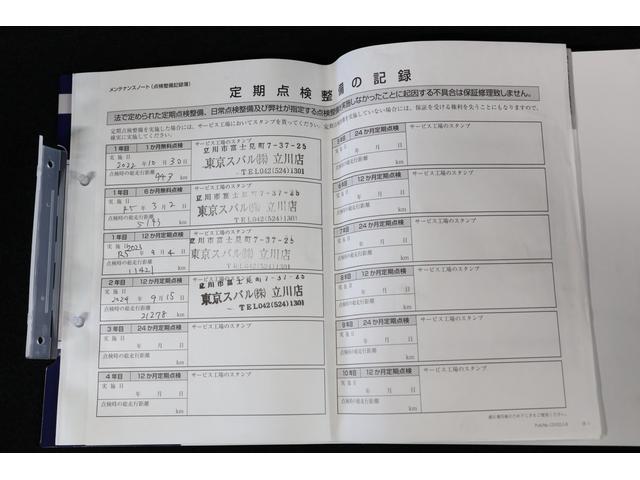 メンテナンスノート（点検整備記録簿）
定期点検整備の記録
法で定められた定期点検整備、日常点検整備及び弊社が指定する点検整備を実施しなかったことに起因する不具合は保証修理致しません。
定期点検整備を実施した場合には、サービス工場においてスタンプを貰ってください。
確実に実施してください。
1年目 1か月無料点検 サービス工場のスタンプ
実施日
2022年10月30日
点検時の総走行距離
947 km
立川市富士見町7-37-25
東京スバル㈱ 立川店
TEL042(524)1301
1年目 6か月無料点検 サービス工場のスタンプ
実施日
R5年3月2日
点検時の総走行距離
5193 km
立川市富士見町7-37-25
東京スバル㈱ 立川店
TEL042(524)1301
1年目 12か月定期点検 サービス工場のスタンプ
実施日 2023
R5年9月4日
点検時の総走行距離
11421 km
立川市富士見町7-37-25
東京スバル㈱ 立川店
TEL042(524)1301
2年目 12か月定期点検 サービス工場のスタンプ
実施日
2024年9月15日
点検時の総走行距離
21278 km
立川市富士見町7-37-25
東京スバル㈱ 立川店
TEL042(524)1301
3年目 24か月定期点検 サービス工場のスタンプ
実施日
年 月 日
点検時の総走行距離
km
4年目 12か月定期点検 サービス工場のスタンプ
実施日
年 月 日
点検時の総走行距離
km
24か月定期点検 サービス工場のスタンプ
実施日
年 月 日
点検時の総走行距離
km
6年目 12か月定期点検 サービス工場のスタンプ
実施日
年 月 日
点検時の総走行距離
km
7年目 24か月定期点検 サービス工場のスタンプ
実施日
年 月 日
点検時の総走行距離
km
8年目 12か月定期点検 サービス工場のスタンプ
実施日
年 月 日
点検時の総走行距離
km
9年目 24か月定期点検 サービス工場のスタンプ
実施日
年 月 日
点検時の総走行距離
km
10年目 12か月定期点検 サービス工場のスタンプ
実施日
年 月 日
点検時の総走行距離
km